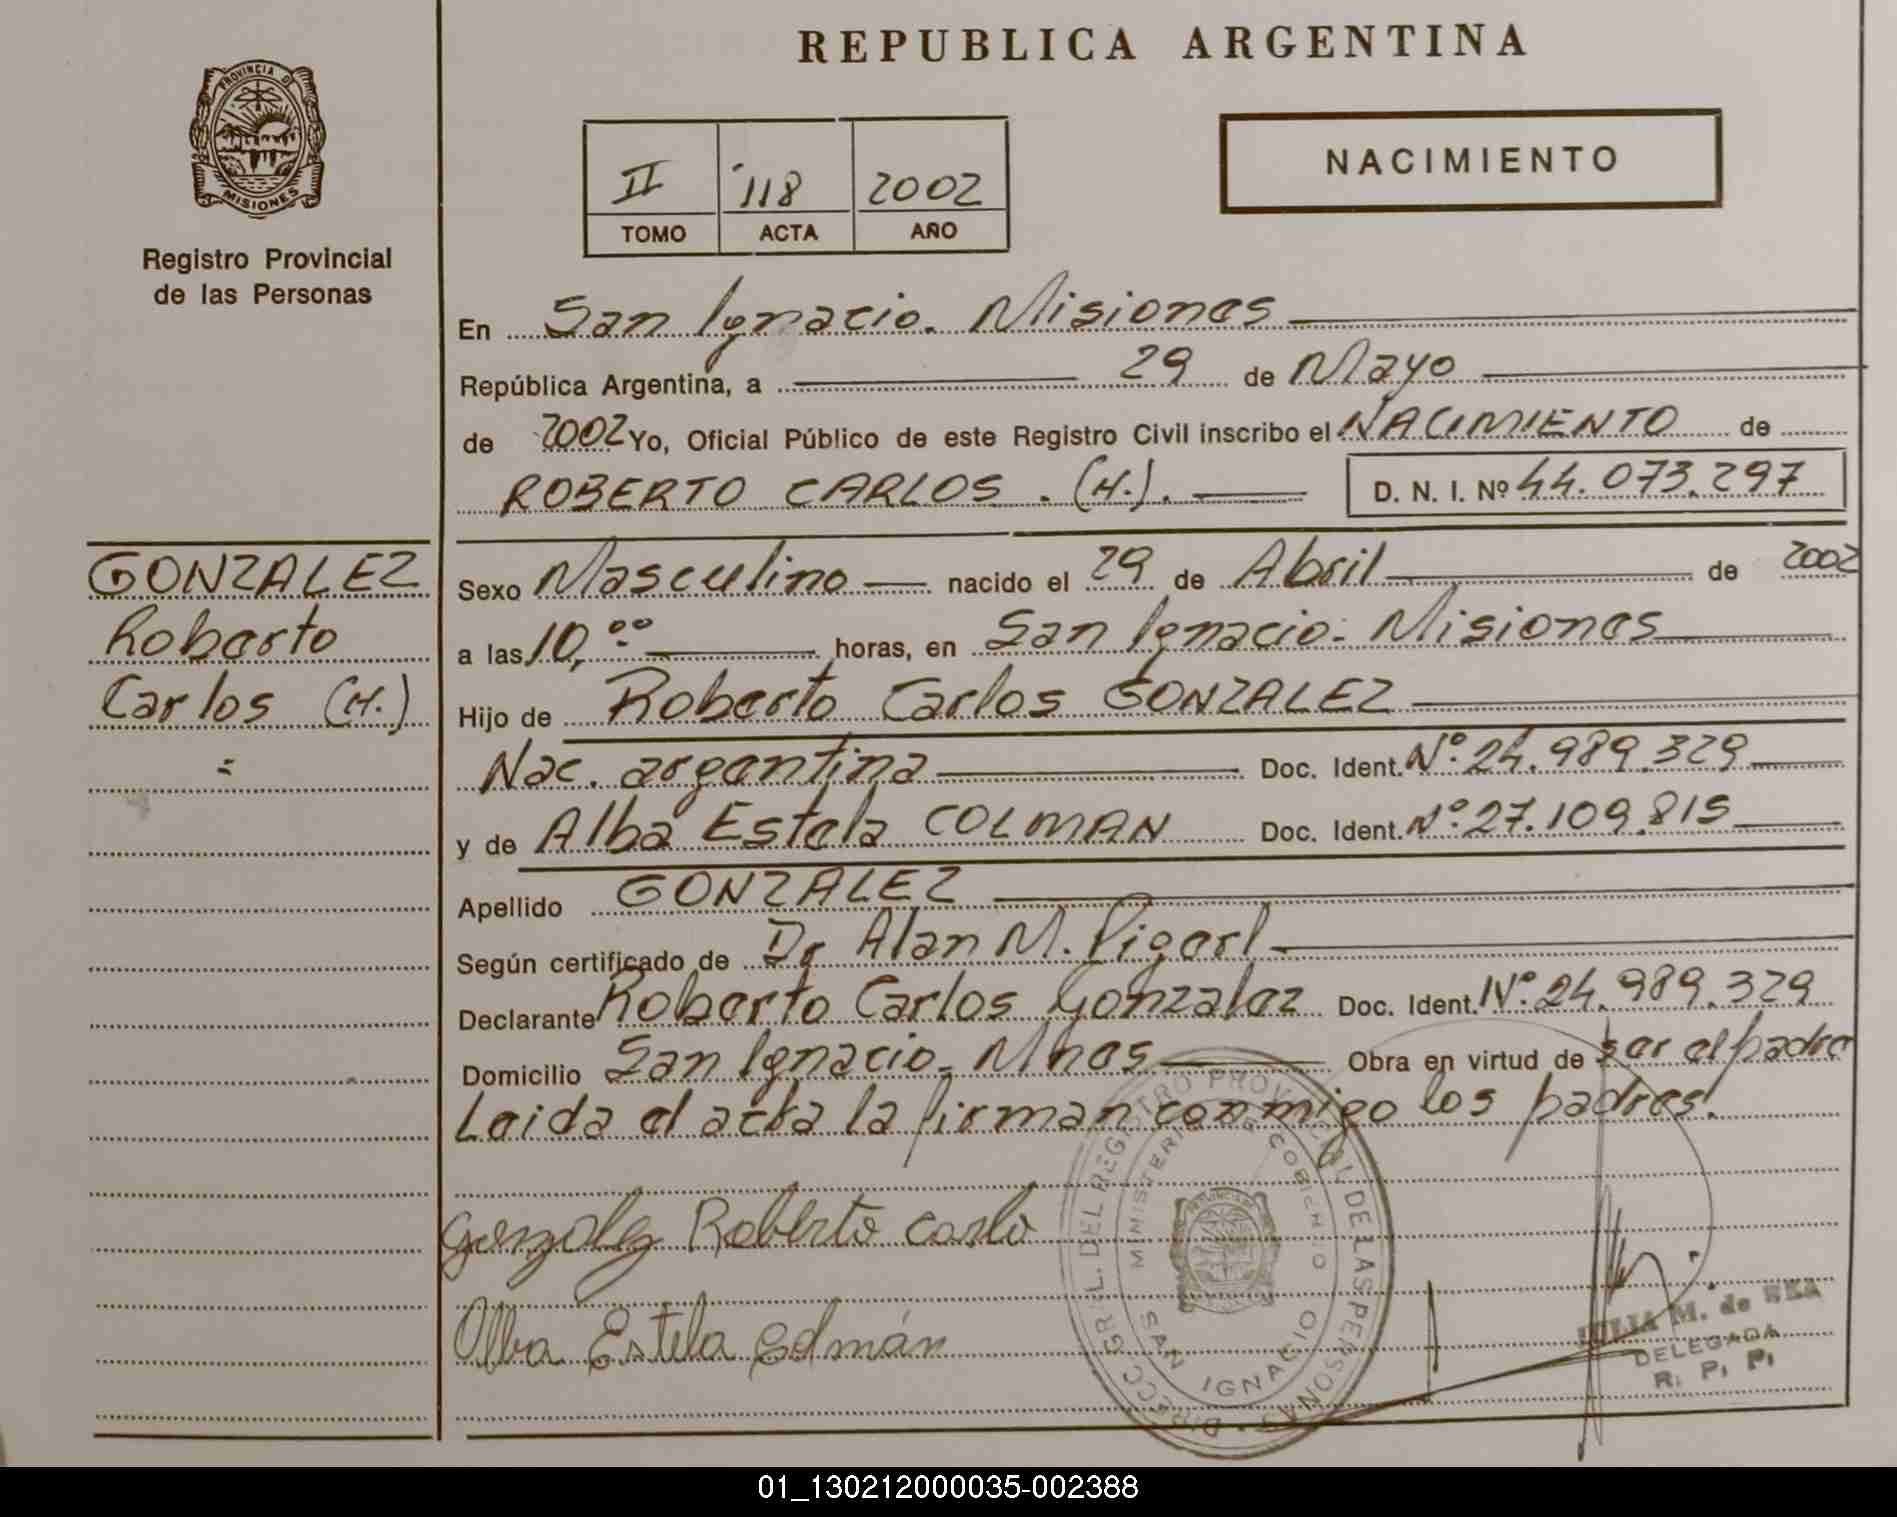 REPUBLICA ARGENTINA
PROVINCIA D
MISIONES
Registro Provincial
de las Personas
II 118 2002
TOMO ACTA AÑO
NACIMIENTO
En San Ignacio. Misiones
República Argentina, a 29 de Mayo
de 2002 Yo, Oficial Público de este Registro Civil inscribo el NACIMIENTO de
ROBERTO CARLOS . (H.). D. N. I. Nº 44.073.297
GONZALEZ
Roberto
Carlos (H.)
=
Sexo Masculino nacido el 29 de Abril de 2002
a las 10,°° horas, en San Ignacio. Misiones
Hijo de Roberto Carlos GONZALEZ
Nac. argentina Doc. Ident. Nº. 24.989.329
y de Alba Estela COLMAN Doc. Ident. Nº. 27.109.815
Apellido GONZALEZ
Según certificado de Dr Alan M.
Declarante Roberto Carlos Gonzalez Doc. Ident. Nº. 24.989.329
Domicilio San Ignacio. Mnes Obra en virtud de ser el padre
Leida el acta la firman conmigo los padres.
Gonzalez Roberto Carlo
Alba Estela Colmán
DIRECC GRAL. DEL REGISTRO PROVINCIAL DE LAS PERSONAS
MINISTERIO DE GOBIERNO
SAN IGNACIO
JULIA M. de
DELEGADA
R. P. P.
01_130212000035-002388